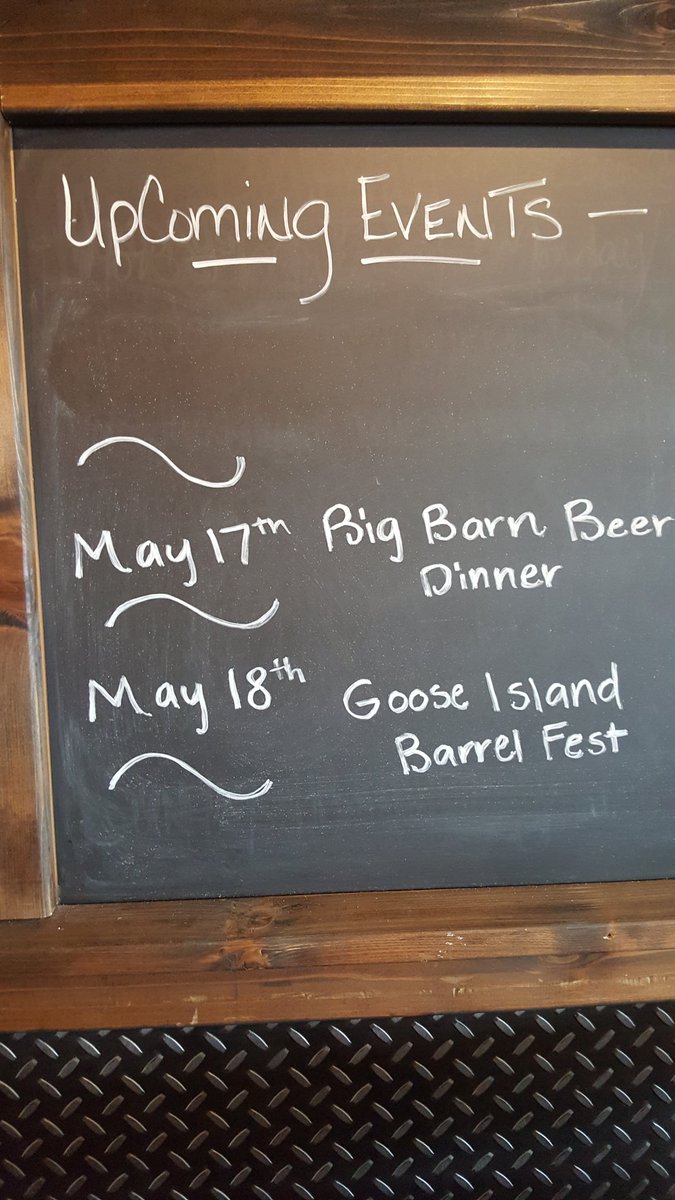 UpComing EVENTS —
May 17th Big Barn Beer
Dinner
May 18th Goose Island
Barrel Fest